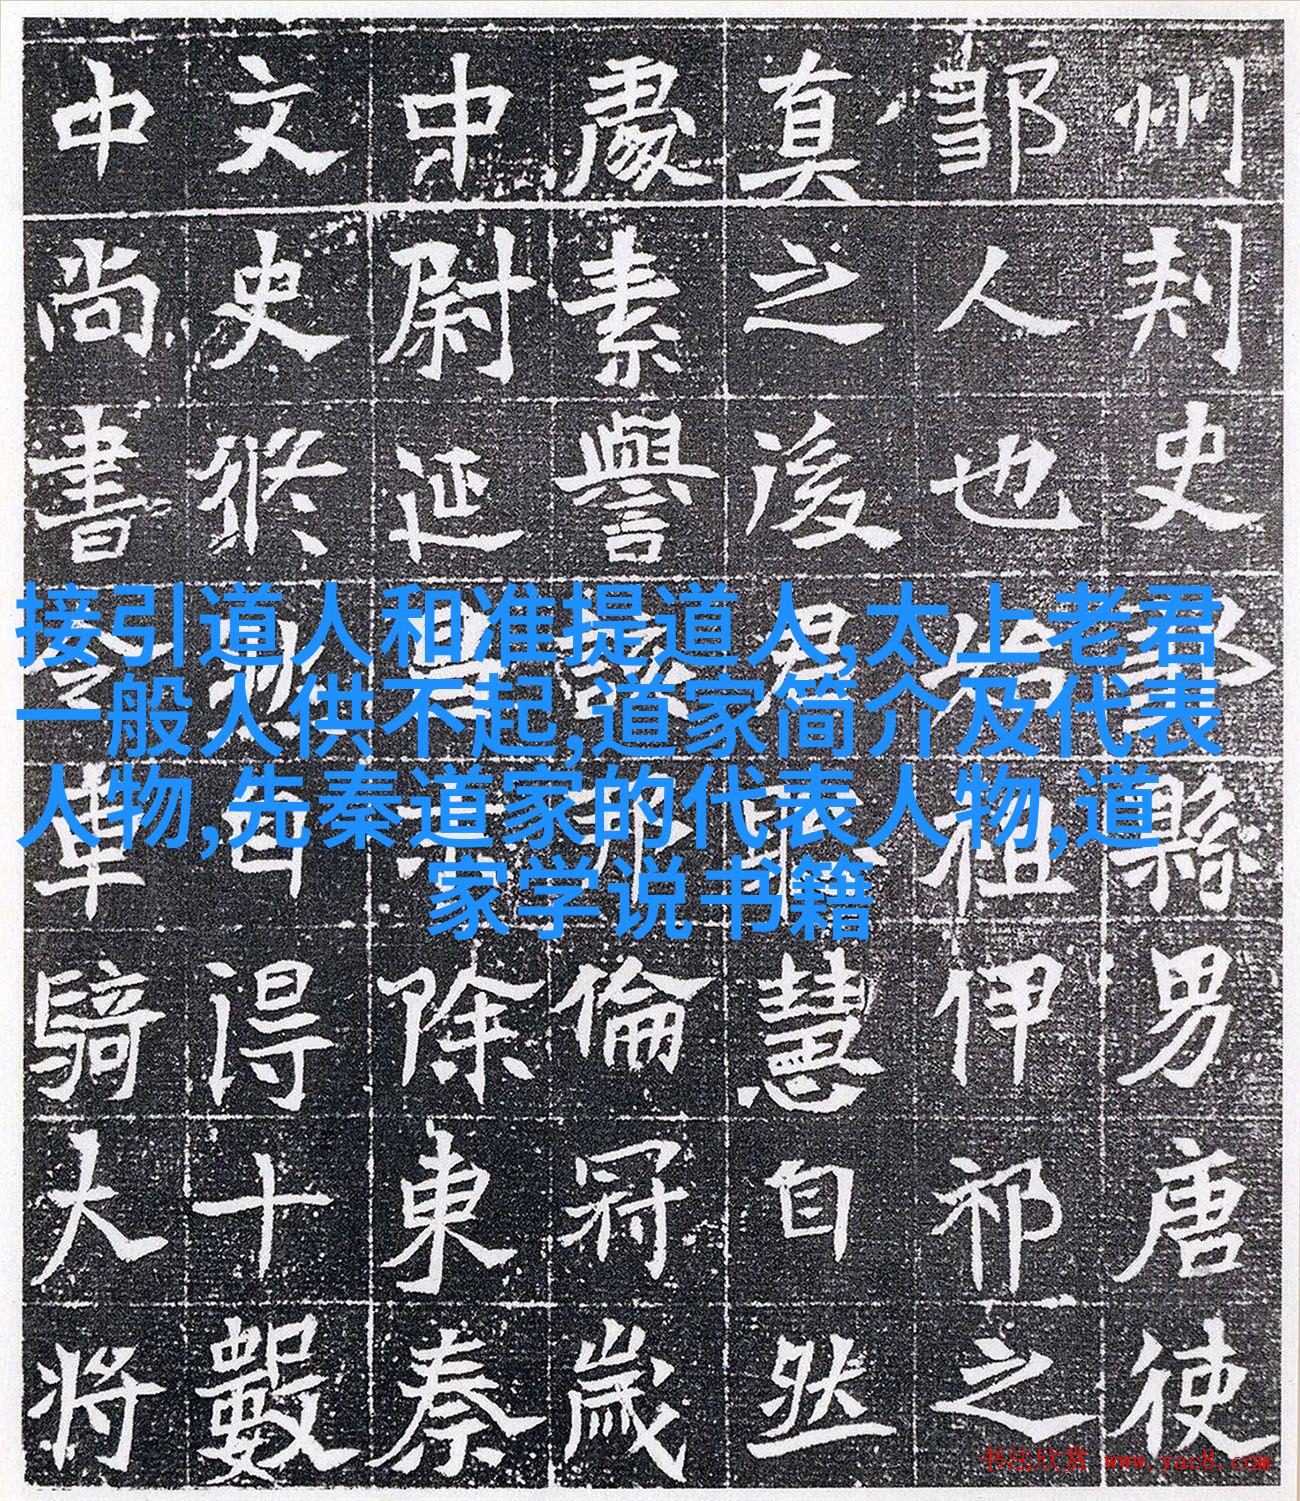 州刾史鄒縣男唐使
鄒人也始祖伊祁之
真之後君慧自然
處素譽倫冠歲
中尉延興除東秦
文史日得十數
中尚書令車騎大将
接引道人和准提道人,太上老君
一般人供不起,道家简介及代表
人物,先秦道家的代表人物,道
家学说书籍
书法欣赏 www.yac8.com